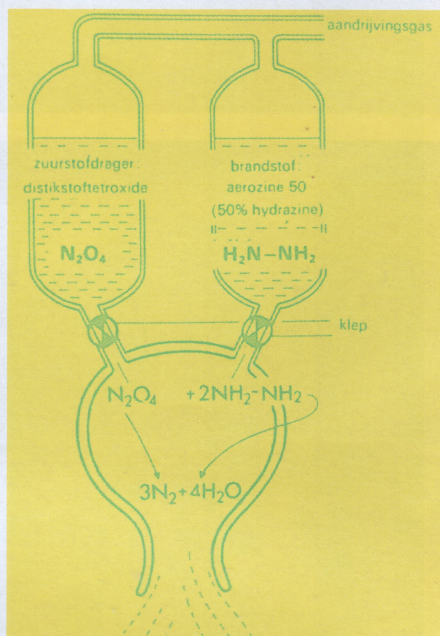 aandrijvingsgas
zuurstofdrager:
distikstoftetroxide
N₂O₄
brandstof:
aerozine 50
(50% hydrazine)
H₂N–NH₂
klep
N₂O₄ +2NH₂-NH₂
3N₂+4H₂O